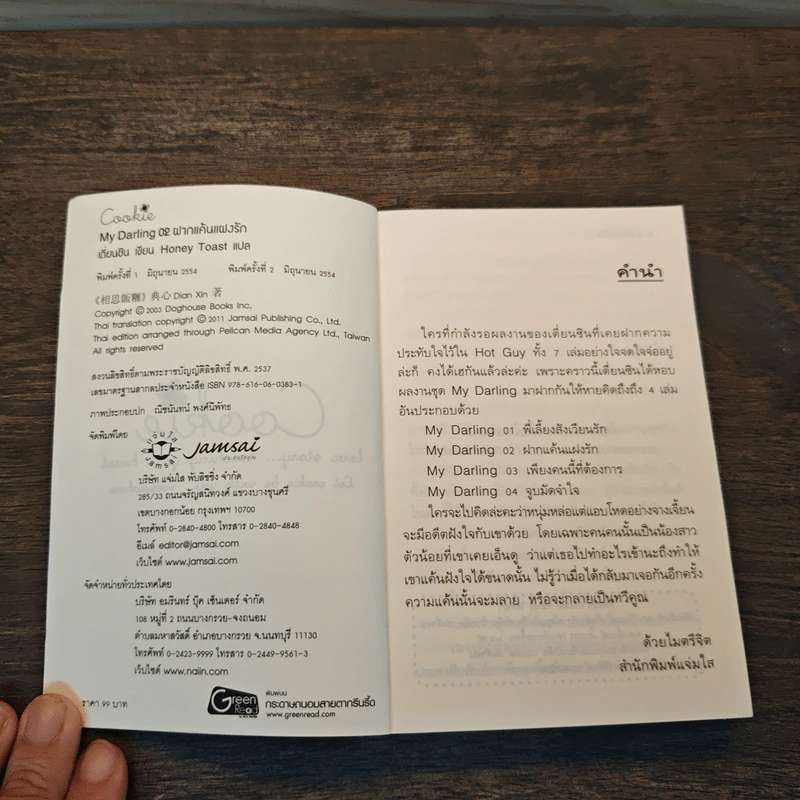 Cookie
My Darling 02 ฝากแค้นแฝงรัก
เตี่ยนซิน เขียน Honey Toast แปล
พิมพ์ครั้งที่ 1 มิถุนายน 2554 พิมพ์ครั้งที่ 2 มิถุนายน 2554
《相思飯糰》典心 Dian Xin 著
Copyright © 2003 Doghouse Books Inc.
Thai translation copyright © 2011 Jamsai Publishing Co., Ltd.
Thai edition arranged through Pelican Media Agency Ltd., Taiwan
All rights reserved
สงวนลิขสิทธิ์ตามพระราชบัญญัติลิขสิทธิ์ พ.ศ. 2537
เลขมาตรฐานสากลประจำหนังสือ ISBN 978-616-06-0383-1
ภาพประกอบปก ณิชนันทน์ พงศ์นิพัทธ
จัดพิมพ์โดย
แจ่มใส
Jamsai
jamsai
บริษัท แจ่มใส พับลิชชิ่ง จำกัด
285/33 ถนนจรัญสนิทวงศ์ แขวงบางขุนศรี
เขตบางกอกน้อย กรุงเทพฯ 10700
โทรศัพท์ 0-2840-4800 โทรสาร 0-2840-4848
อีเมล์ editor@jamsai.com
เว็บไซต์ www.jamsai.com
จัดจำหน่ายทั่วประเทศโดย
บริษัท อมรินทร์ บุ๊ค เซ็นเตอร์ จำกัด
108 หมู่ที่ 2 ถนนบางกรวย-จงถนอม
ตำบลมหาสวัสดิ์ อำเภอบางกรวย จ.นนทบุรี 11130
โทรศัพท์ 0-2423-9999 โทรสาร 0-2449-9561-3
เว็บไซต์ www.naiin.com
ราคา 99 บาท
Green Read
พิมพ์บน
กระดาษถนอมสายตากรีนรี้ด
www.greenread.com
คำนำ
ใครที่กำลังรอผลงานของเตี่ยนซินที่เคยฝากความ
ประทับใจไว้ใน Hot Guy ทั้ง 7 เล่มอย่างใจจดใจจ่ออยู่
ล่ะก็ คงได้เฮกันแล้วล่ะค่ะ เพราะคราวนี้เตี่ยนซินได้หอบ
ผลงานชุด My Darling มาฝากกันให้หายคิดถึงถึง 4 เล่ม
อันประกอบด้วย
My Darling 01 พี่เลี้ยงสังเวียนรัก
My Darling 02 ฝากแค้นแฝงรัก
My Darling 03 เพียงคนนี้ที่ต้องการ
My Darling 04 จูบมัดจำใจ
ใครจะไปคิดล่ะคะว่าหนุ่มหล่อแต่แอบโหดอย่างจางเจี้ยน
จะมีอดีตฝังใจกับเขาด้วย โดยเฉพาะคนคนนั้นเป็นน้องสาว
ตัวน้อยที่เขาเคยเอ็นดู ว่าแต่เธอไปทำอะไรเข้านะถึงทำให้
เขาแค้นฝังใจได้ขนาดนั้น ไม่รู้ว่าเมื่อได้กลับมาเจอกันอีกครั้ง
ความแค้นนั้นจะมลาย หรือจะกลายเป็นทวีคูณ
ด้วยไมตรีจิต
สำนักพิมพ์แจ่มใส